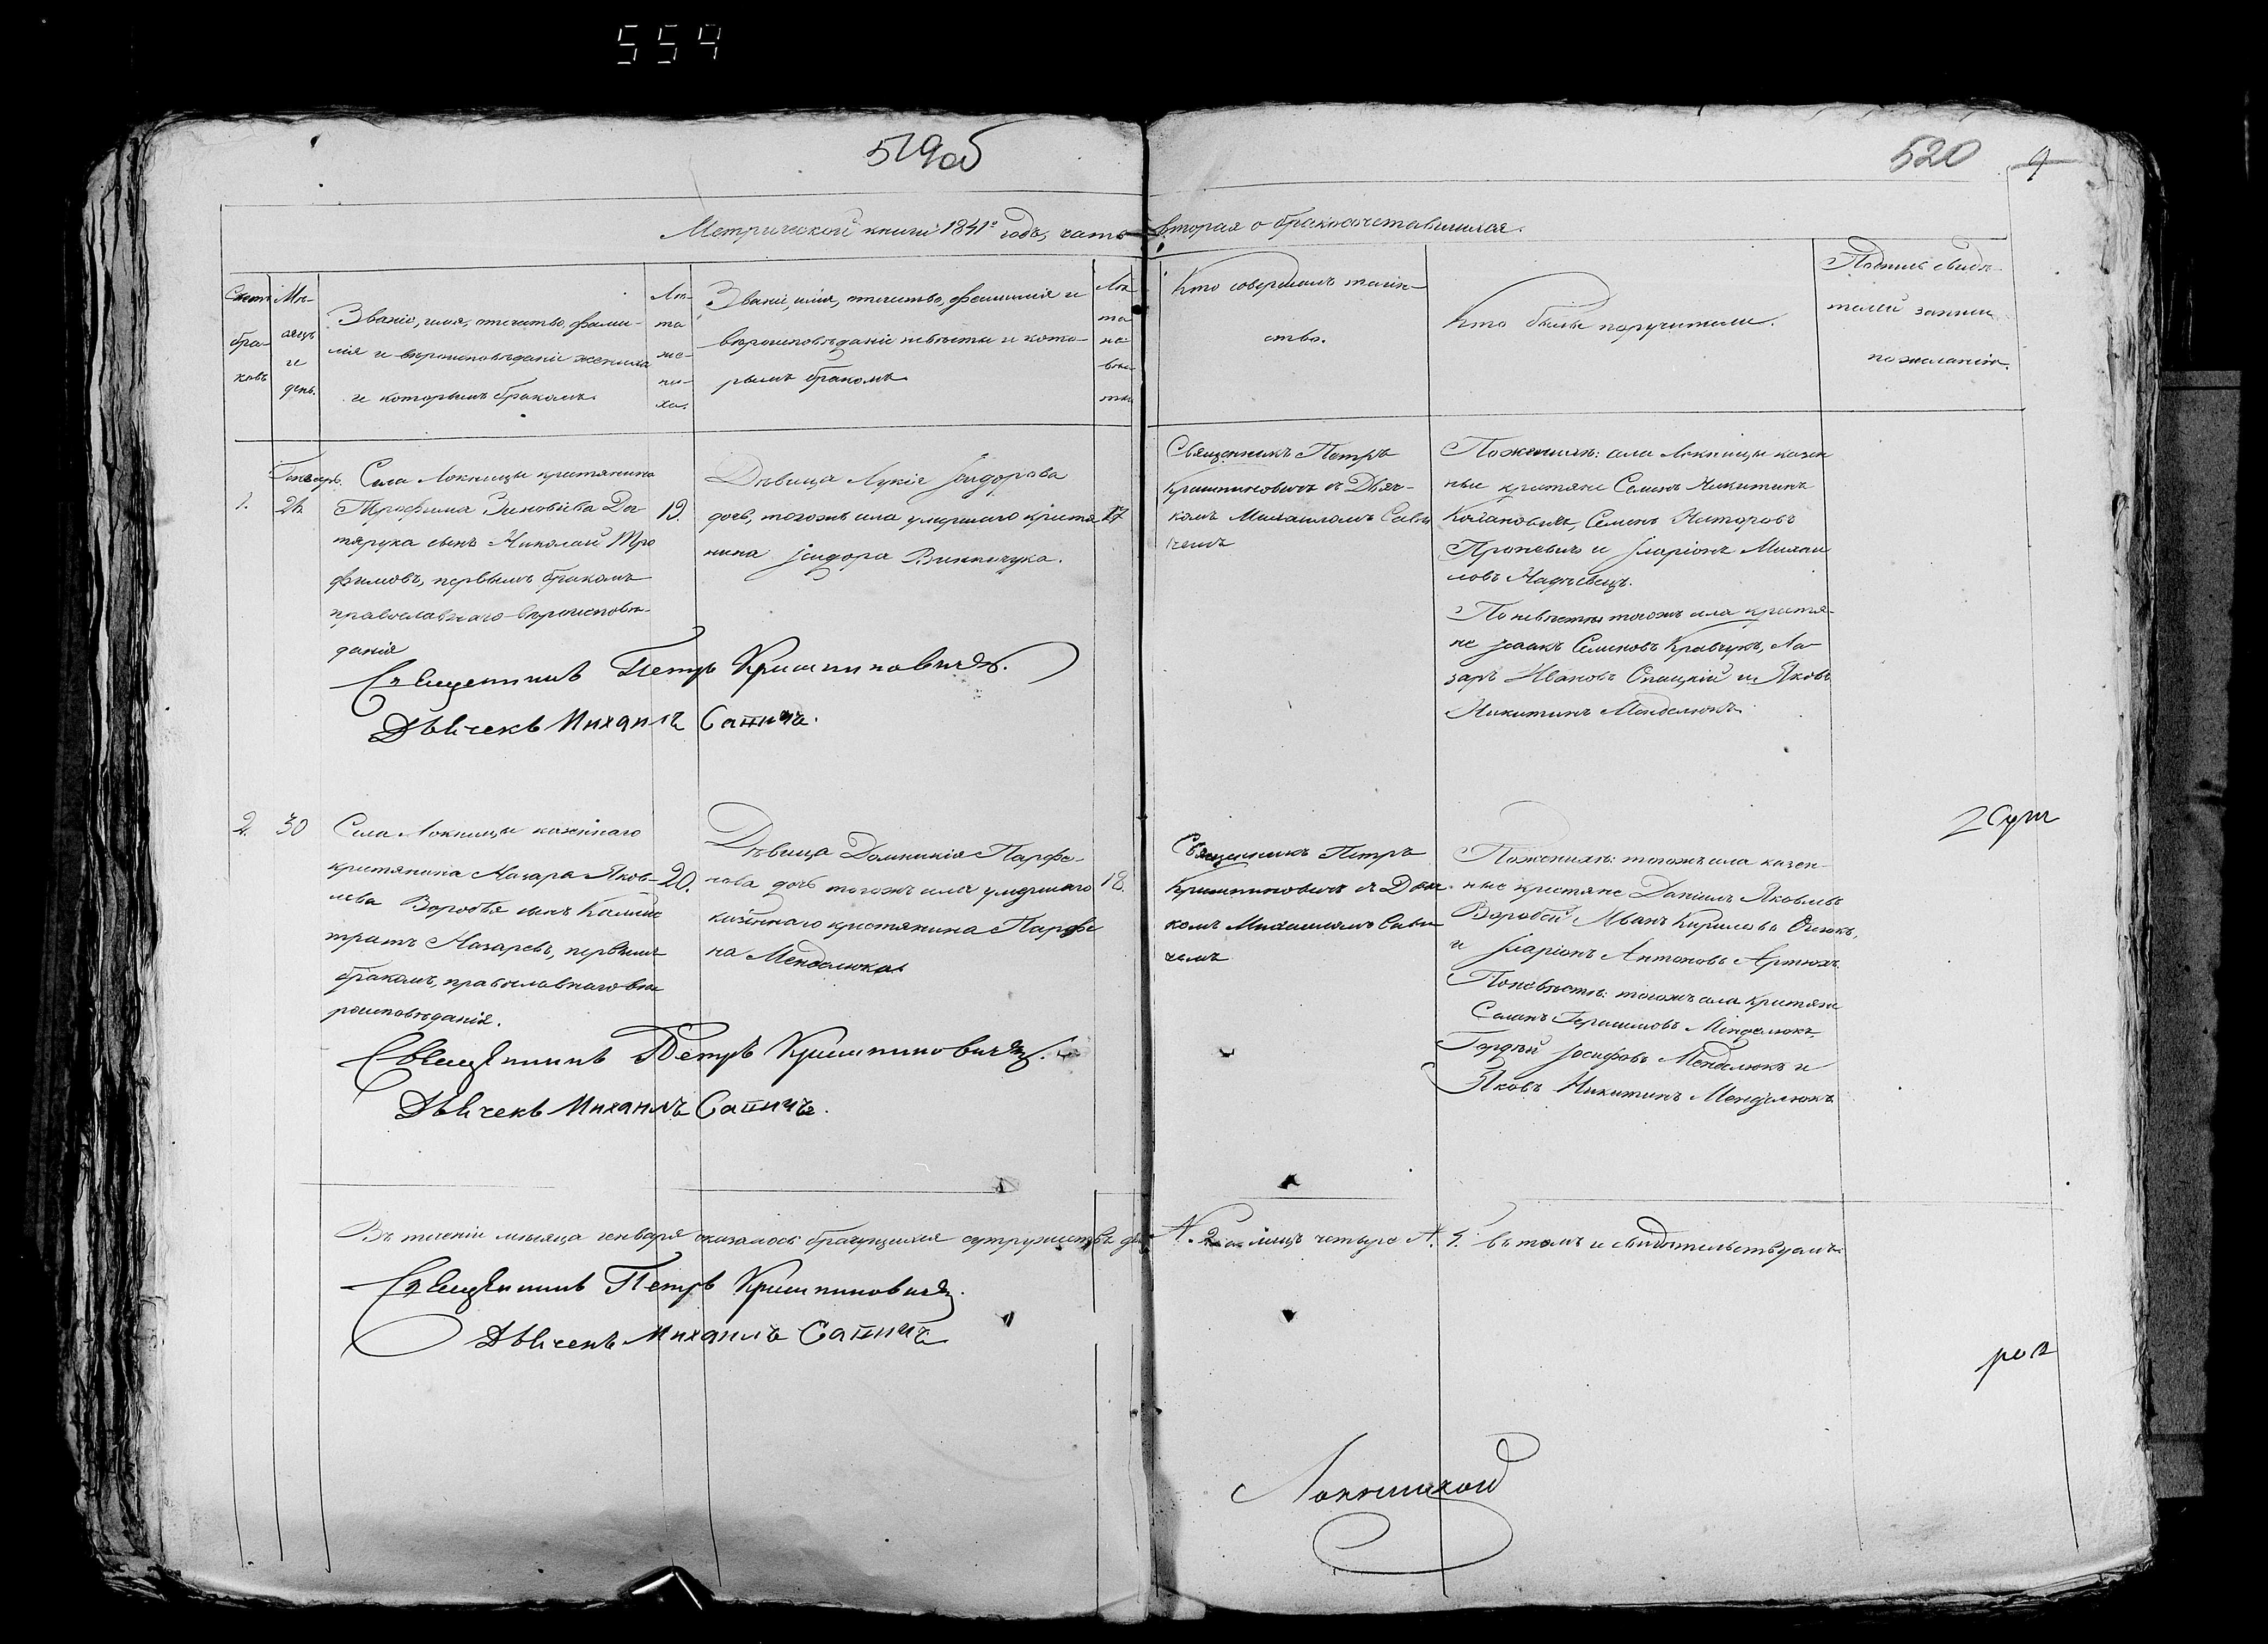 554
519об
520
9
Метрической книги 1841º годъ, часть вторая о бракосочетавшихся.
Счетъ браковъ
Мѣсяцъ и день.
Званіе, имя, отчество, фами-
лія и вѣроисповѣданіе жениха
и которымъ бракомъ.
Лѣта жениха.
Званіе, имя, отчество, фамилія и
вѣроисповѣданіе невѣсты и кото-
рымъ бракомъ.
Лѣта невѣсты
Кто совершалъ таин-
ство.
Кто были поручители.
Подпись свидѣ-
телей записи
по желанію.
1.
Генварь
Села Локницы крестянина
Трофима Зиновіева Дег
тярука сынъ Николай Тро
фимовъ, первымъ бракомъ
православнаго вѣроисповѣ-
данія
19.
Дѣвица Лукія Ісидорова
дочь, тогожъ села умершаго крестя
нина Ісидора Винничука.
17
Священникъ Петръ
Криштиновичъ съ Дьяч-
комъ Михаиломъ Сави
чемъ
По женихѣ: села Локницы казен
ные крестяне Семенъ Никитинъ
Семенъ
и Іларіонъ Михаи
ловъ
По невѣсты тогожъ села крестя-
не Ісаакъ Семеновъ Кравчукъ, Ла-
заръ Ивановъ Спацкій и Яковъ
Никитинъ Менделюкъ.
Священникъ Петръ Криштиновичъ.
Дьячекъ Михаилъ Савичъ.
2.
30
Села Локницы казеннаго
крестянина Назара Яков-
лева Воробья сынъ Калис
тратъ Назаревъ, первымъ
бракомъ, православнаго вѣ
роисповѣданія.
20.
Дѣвица Домникія Парфе-
нова дочь тогожъ села умершаго
казеннаго крестянина Парфе
на Менделюка
18.
Священникъ Петръ
Криштиновичъ съ Дьяч
комъ Михаиломъ Сави
чемъ
По женихѣ: тогожъ села казен-
ные крестяне Даніилъ Яковлевъ
Воробей Иванъ Кириловъ
и Іларіонъ Антоновъ Артюхъ
По невѣстѣ: тогожъ села крестяне
Семенъ Герасимовъ Менделюкъ,
Гордѣй Іосифовъ Менделюкъ и
Яковъ Никитинъ Менделюкъ
2 Суш
Священникъ Петръ Криштиновичъ.
Дьячекъ Михаилъ Савичъ.
Въ теченіи мѣсяца генваря оказалось брачущихся супружествъ два N. 2. а лицъ четыре N. 4. въ томъ и свидѣтельствуемъ
Священникъ Петръ Криштиновичъ.
Дьячекъ Михаилъ Савичъ